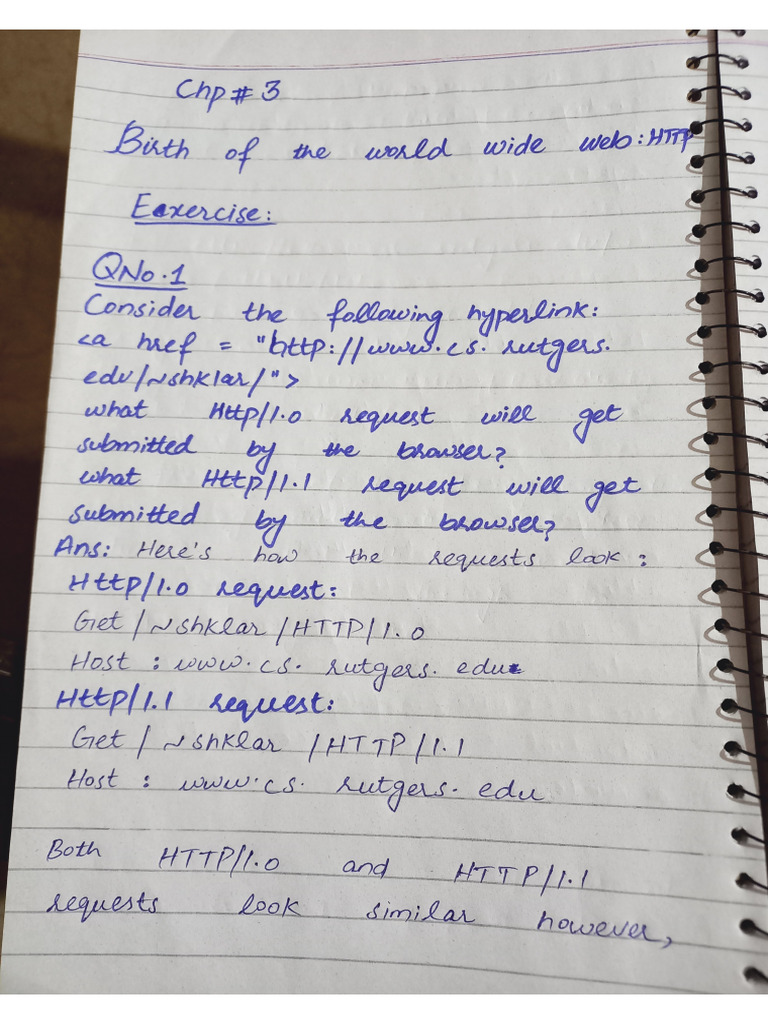 Chp # 3
Birth of the world wide web: HTTP
Eexercise:
QNo.1
Consider the following hyperlink:
<a href = "http://www.cs.rutgers.
edu/~shklar/">
what Http/1.0 request will get
submitted by the browser?
what Http/1.1 request will get
submitted by the browser?
Ans: Here's how the requests look :
Http/1.0 request:
Get / ~shklar /HTTP/1.0
Host : www.cs.rutgers.edu
Http/1.1 request:
Get / ~shklar /HTTP/1.1
Host : www.cs.rutgers.edu
Both HTTP/1.0 and HTTP/1.1
requests look similar however,